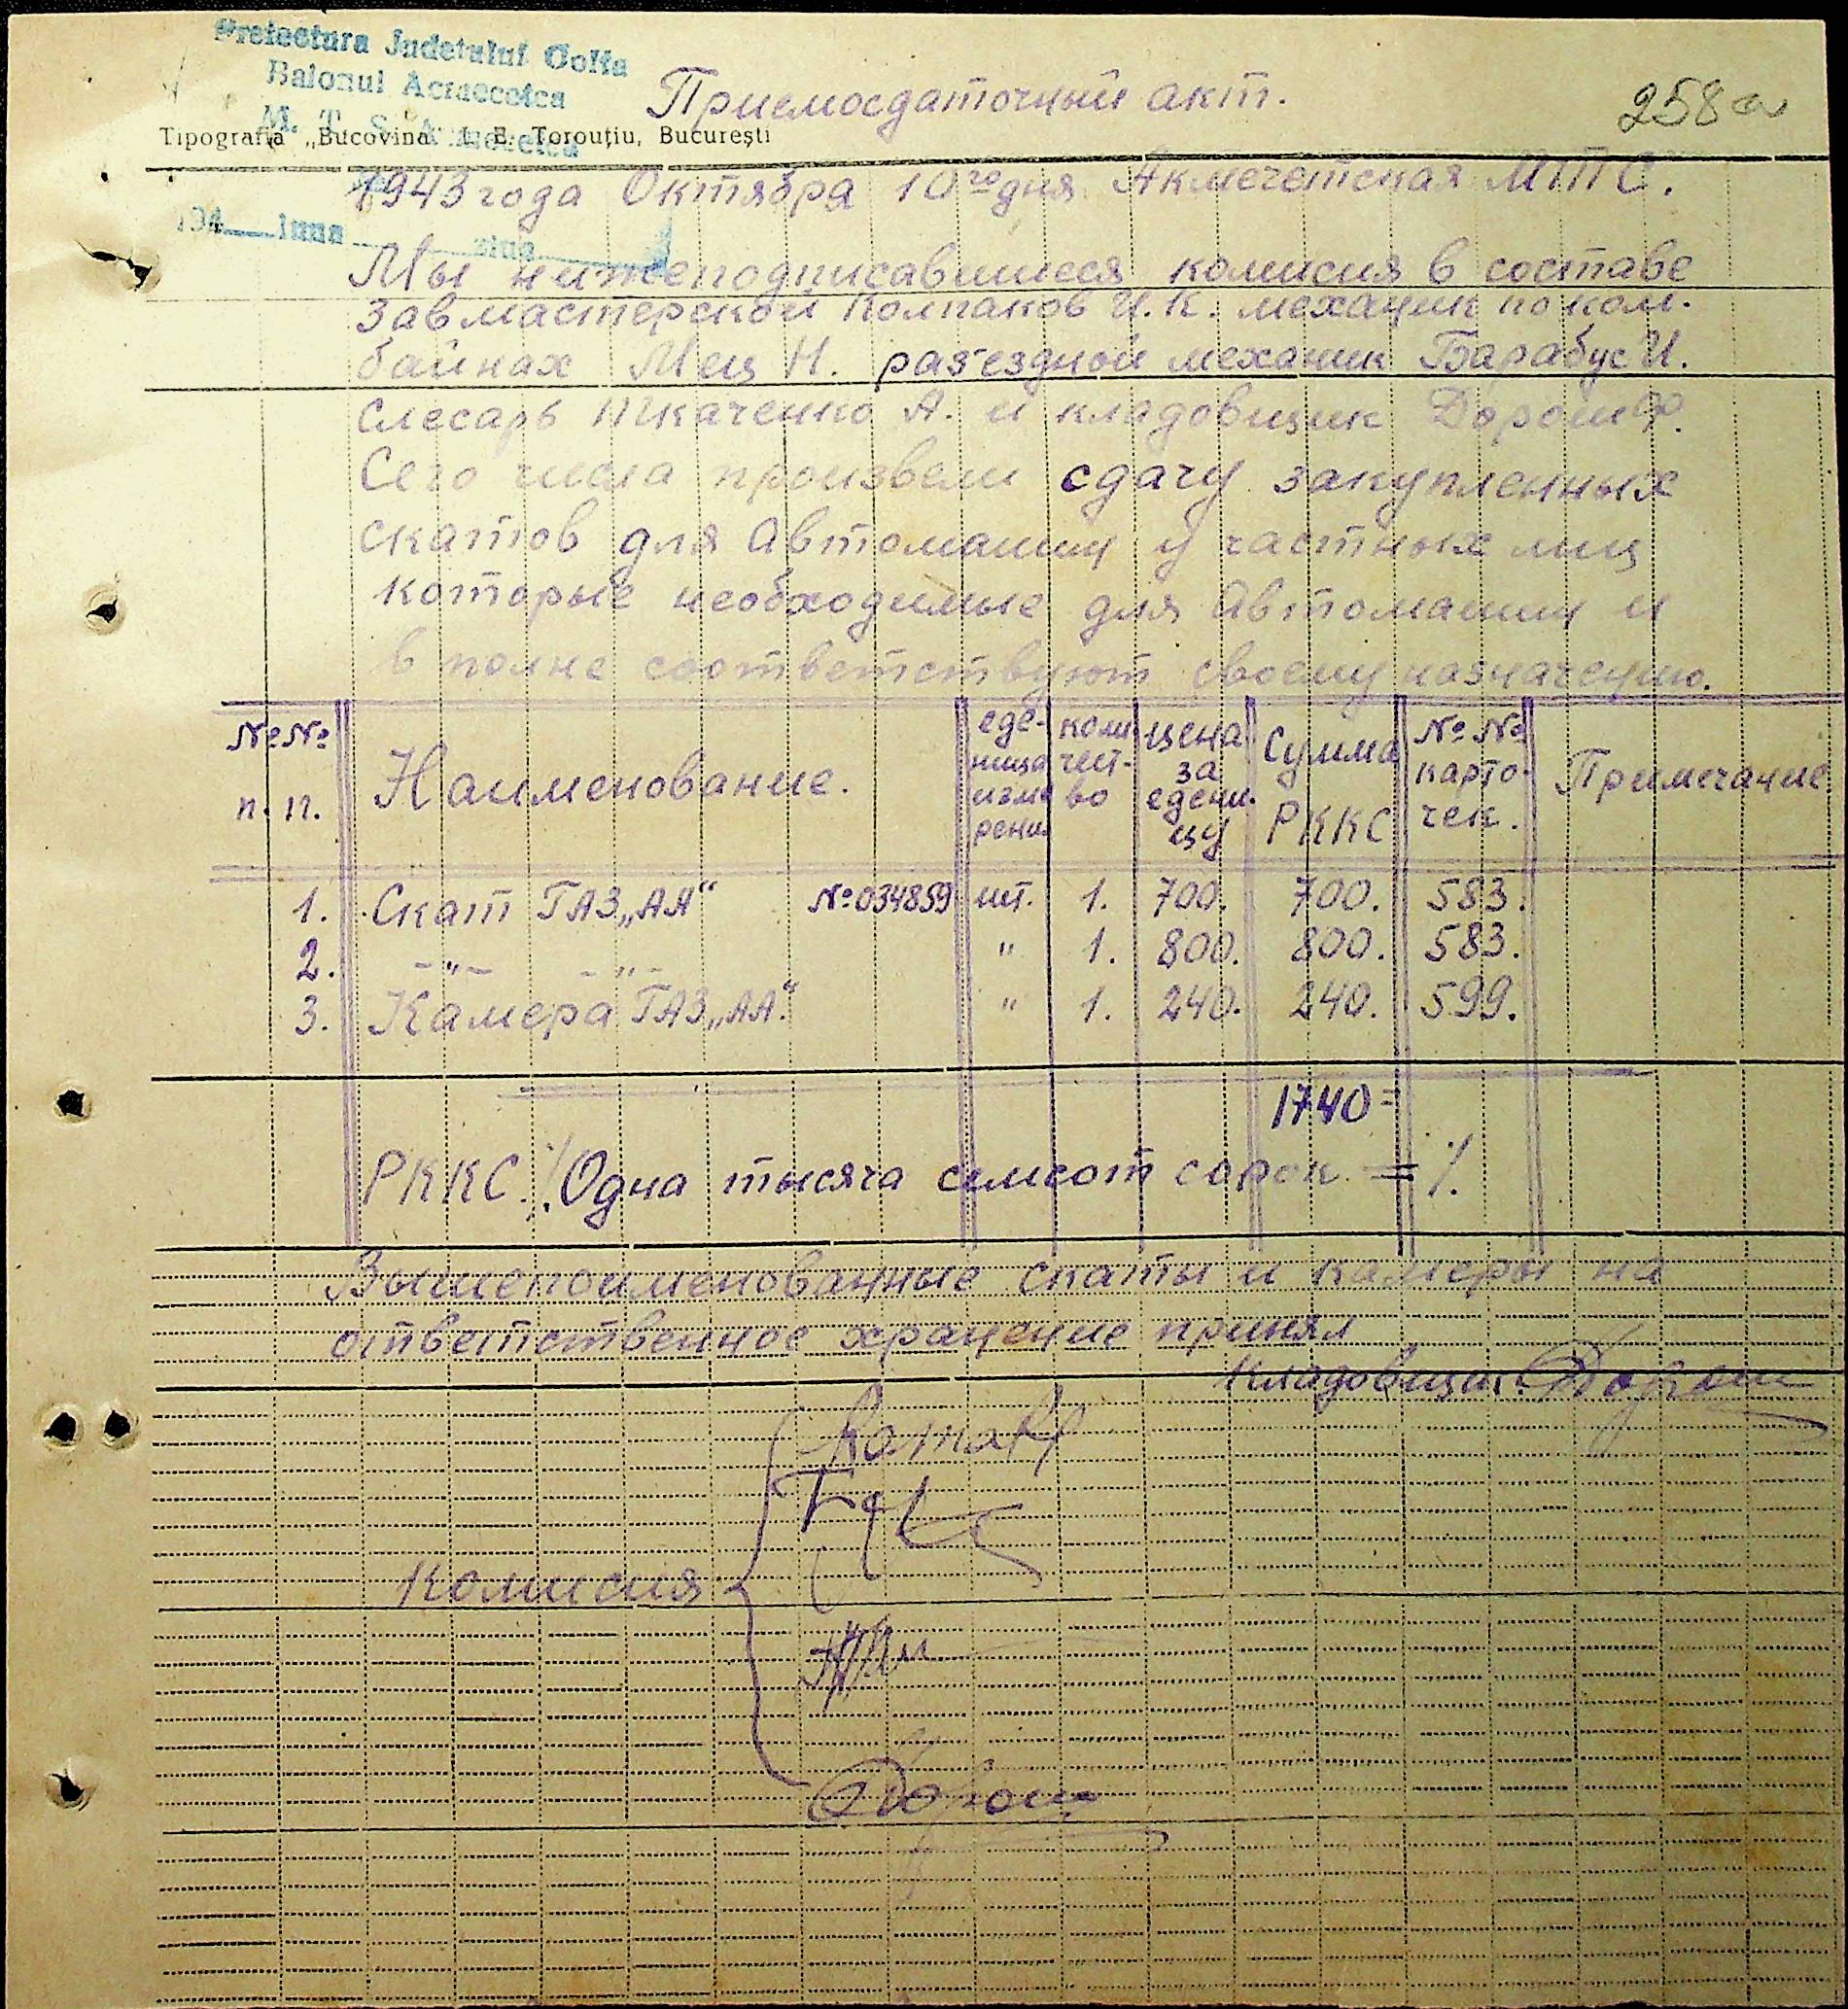 Prefectura Judetului Golta
Raionul Acmecetca
M. T. S. Acmecetca
Приемосдаточный акт.
258а
Tipografia „Bucovina" I. E. Torouțiu, București
1943 года Октября 10го дня Акмечетская МТС.
194 luna ziua
Мы нижеподписавшиеся комисия в составе
Завмастерской Колпаков И.К. механик по ком-
байнах Мец Н. раз'ездной механик Барабус И.
Слесарь Ткаченко А. и кладовщик Дорош Ф.
Сего числа произвели сдачу закупленных
скатов для Автомашин у частных лиц
которые необходимые для Автомашин и
в полне соответствуют своему назначению.
№№ п.п. Наименование. еде-ница изме рени. коли чест-во цена за едени-цу Сумма РККС №№ карто-чек. Примечание
1. Скат ГАЗ „АА" №034859 шт. 1. 700. 700. 583.
2. -„- -„- " 1. 800. 800. 583.
3. Камера ГАЗ „АА." " 1. 240. 240. 599.
1740=
РККС. ⁒ Одна тысяча семсот сорок. = ⁒
Вышепоименованные скаты и камеры на
ответственное хранение принял
Кладовщик. Дорош
Комисия
Дорош